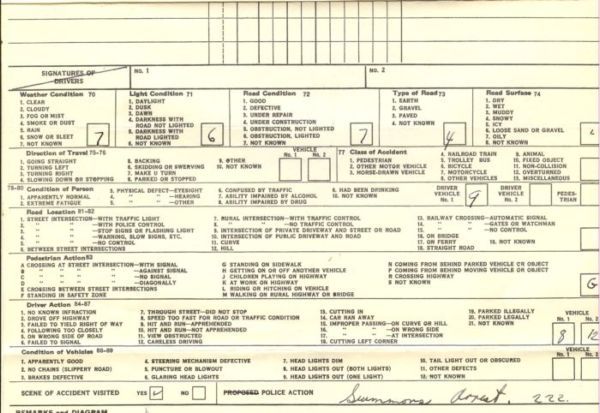 SIGNATURES OF DRIVERS NO. 1 NO. 2
Weather Condition 70
1. CLEAR
2. CLOUDY
3. FOG OR MIST
4. SMOKE OR DUST
5. RAIN
6. SNOW OR SLEET
7. NOT KNOWN
7
Light Condition 71
1. DAYLIGHT
2. DUSK
3. DAWN
4. DARKNESS WITH ROAD NOT LIGHTED
5. DARKNESS WITH ROAD LIGHTED
6. NOT KNOWN
6
Road Condition 72
1. GOOD
2. DEFECTIVE
3. UNDER REPAIR
4. UNDER CONSTRUCTION
5. OBSTRUCTION, NOT LIGHTED
6. OBSTRUCTION, LIGHTED
7. NOT KNOWN
7
Type of Road 73
1. EARTH
2. GRAVEL
3. PAVED
4. NOT KNOWN
4
Road Surface 74
1. DRY
2. WET
3. MUDDY
4. SNOWY
5. ICY
6. LOOSE SAND OR GRAVEL
7. OILY
8. NOT KNOWN
Direction of Travel 75-76
1. GOING STRAIGHT
2. TURNING LEFT
3. TURNING RIGHT
4. SLOWING DOWN OR STOPPING
5. BACKING
6. SKIDDING OR SWERVING
7. MAKE U TURN
8. PARKED OR STOPPED
9. OTHER
10. NOT KNOWN
VEHICLE
No. 1 No. 2
77 Class of Accident
1. PEDESTRIAN
2. OTHER MOTOR VEHICLE
3. HORSE-DRAWN VEHICLE
4. RAILROAD TRAIN
5. TROLLEY BUS
6. BICYCLE
7. MOTORCYCLE
8. OTHER VEHICLES
9. ANIMAL
10. FIXED OBJECT
11. NON-COLLISION
12. OVERTURNED
13. MISCELLANEOUS
78-80 Condition of Person
1. APPARENTLY NORMAL
2. EXTREME FATIGUE
3. PHYSICAL DEFECT—EYESIGHT
4. " " —HEARING
5. " " —OTHER
6. CONFUSED BY TRAFFIC
7. ABILITY IMPAIRED BY ALCOHOL
8. ABILITY IMPAIRED BY DRUG
9. HAD BEEN DRINKING
10. NOT KNOWN
DRIVER VEHICLE No. 1 9
DRIVER VEHICLE No. 2
PEDESTRIAN
Road Location 81-82
1. STREET INTERSECTION—WITH TRAFFIC LIGHT
2. " " —WITH POLICE CONTROL
3. " " —STOP SIGNS OR FLASHING LIGHT
4. " " —WARNING, SLOW SIGNS, ETC.
5. " " —NO CONTROL
6. BETWEEN STREET INTERSECTIONS
7. RURAL INTERSECTION—WITH TRAFFIC CONTROL
8. " " —NO TRAFFIC CONTROL
9. INTERSECTION OF PRIVATE DRIVEWAY AND STREET OR ROAD
10. INTERSECTION OF PUBLIC DRIVEWAY AND ROAD
11. CURVE
12. HILL
13. RAILWAY CROSSING—AUTOMATIC SIGNAL
14. " " —GATES OR WATCHMAN
15. " " —NO CONTROL
16. ON BRIDGE
17. ON FERRY
18. STRAIGHT ROAD
18. NOT KNOWN
Pedestrian Action 83
A CROSSING AT STREET INTERSECTION—WITH SIGNAL
B " " " " —AGAINST SIGNAL
C " " " " —NO SIGNAL
D " " " " —DIAGONALLY
E CROSSING BETWEEN STREET INTERSECTIONS
F STANDING IN SAFETY ZONE
G STANDING ON SIDEWALK
H GETTING ON OR OFF ANOTHER VEHICLE
J CHILDREN PLAYING ON HIGHWAY
K AT WORK ON HIGHWAY
L RIDING OR HITCHING ON VEHICLE
M WALKING ON RURAL HIGHWAY OR BRIDGE
N COMING FROM BEHIND PARKED VEHICLE OR OBJECT
P COMING FROM BEHIND MOVING VEHICLE OR OBJECT
R CROSSING HIGHWAY
S NOT KNOWN
G
Driver Action 84-87
1. NO KNOWN INFRACTION
2. DROVE OFF HIGHWAY
3. FAILED TO YIELD RIGHT OF WAY
4. FOLLOWING TOO CLOSELY
5. ON WRONG SIDE OF ROAD
6. FAILED TO SIGNAL
7. THROUGH STREET—DID NOT STOP
8. SPEED TOO FAST FOR ROAD OR TRAFFIC CONDITION
9. HIT AND RUN—APPREHENDED
10. HIT AND RUN—NOT APPREHENDED
11. VIEW OBSTRUCTED
12. CARELESS DRIVING
13. CUTTING IN
14. CAR RAN AWAY
15. IMPROPER PASSING—ON CURVE OR HILL
16. " " —ON WRONG SIDE
17. " " —AT INTERSECTION
18. CUTTING LEFT CORNER
19. PARKED ILLEGALLY
20. PARKED LEGALLY
21. NOT KNOWN
VEHICLE
No. 1 No. 2
8 12
Condition of Vehicles 88-89
1. APPARENTLY GOOD
2. NO CHAINS (SLIPPERY ROAD)
3. BRAKES DEFECTIVE
4. STEERING MECHANISM DEFECTIVE
5. PUNCTURE OR BLOWOUT
6. GLARING HEAD LIGHTS
7. HEAD LIGHTS DIM
8. HEAD LIGHTS OUT (BOTH LIGHTS)
9. HEAD LIGHTS OUT (ONE LIGHT)
10. TAIL LIGHT OUT OR OBSCURED
11. OTHER DEFECTS
12. NOT KNOWN
VEHICLE
No. 1 No. 2
SCENE OF ACCIDENT VISITED YES NO PROPOSED POLICE ACTION Summons Arrest. 222.
REMARKS and DIAGRAM